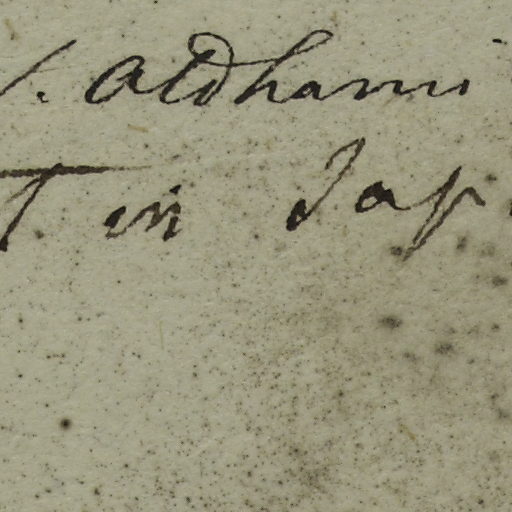 Aldhami
T in Jap